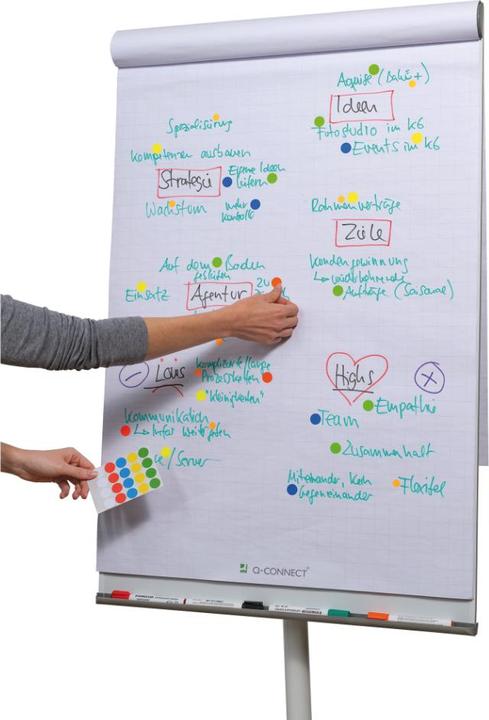 Akquise (Bahn+)
Ideen
Fotostudio im k6
Events im k6
Spezialisierung
Kompetenzen ausbauen
Strategie
Eigene Ideen
liefern
Wachstum
mehr
Kontrolle
Rahmenverträge
Ziele
Kundengewinnung
Aufträge (Saisonal)
Auf dem Boden
Einsatz
Agentur
Lows
"Kleinigkeiten"
Kommunikation
↳ Infos weitergeben
/Server
Highs
Team
Empathie
Zusammenhalt
Miteinander, kein
Gegeneinander
Flexibel
Q-CONNECT®